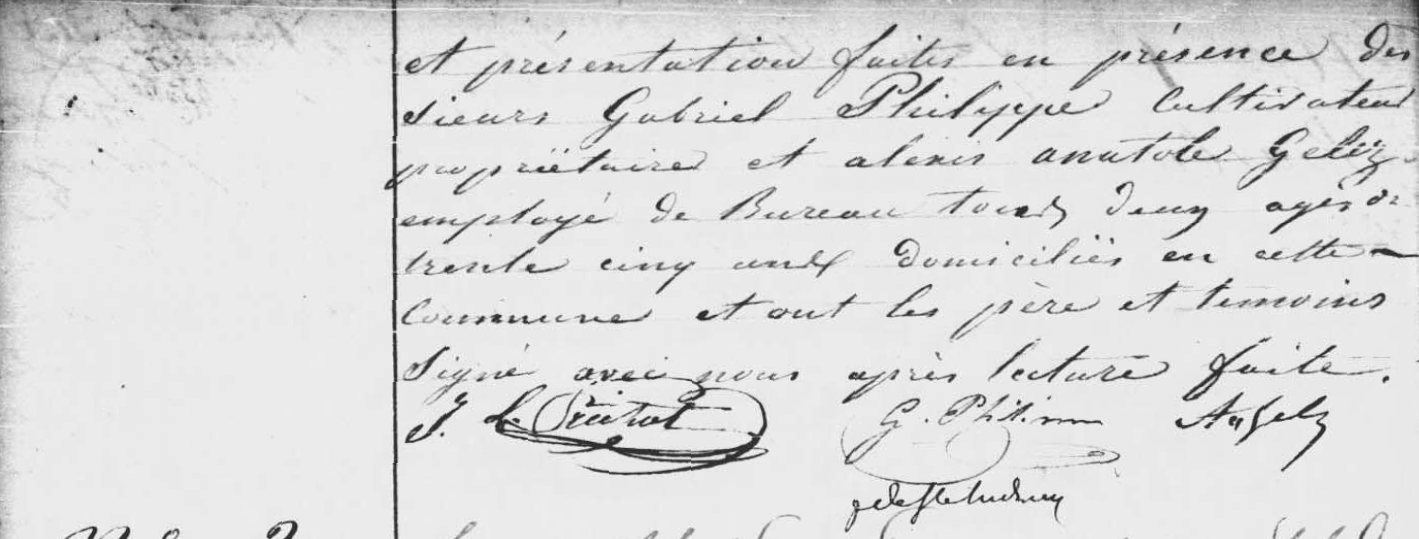 et présentation faites en présence des
sieurs Gabriel Philippe Cultivateur
propriëtaire et alexis anatole Geliz
employé de Bureau tous deux agés de
trente cinq ans domiciliës en cette
Commune et ont les père et temoins
Signé avec nous après lecture faite.
J. L.
G.